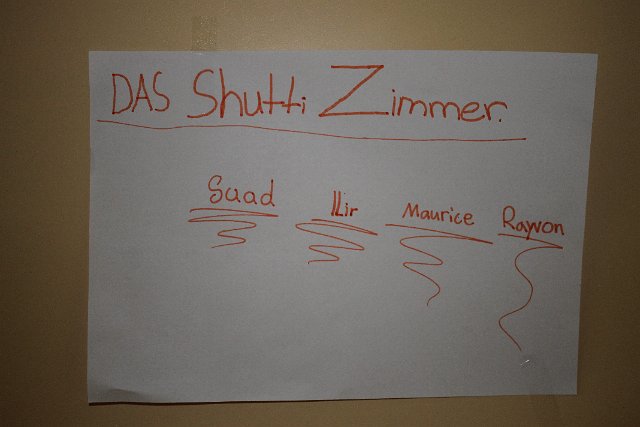 DAS Shutti Zimmer.
Saad ILir Maurice Rayvon